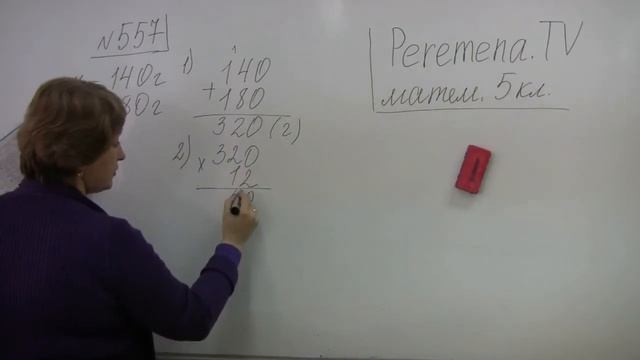 N557
140г
80г
1) 1
140
+ 180
320 (г)
2) 320
× 12
Peremena.TV
матем. 5 кл.